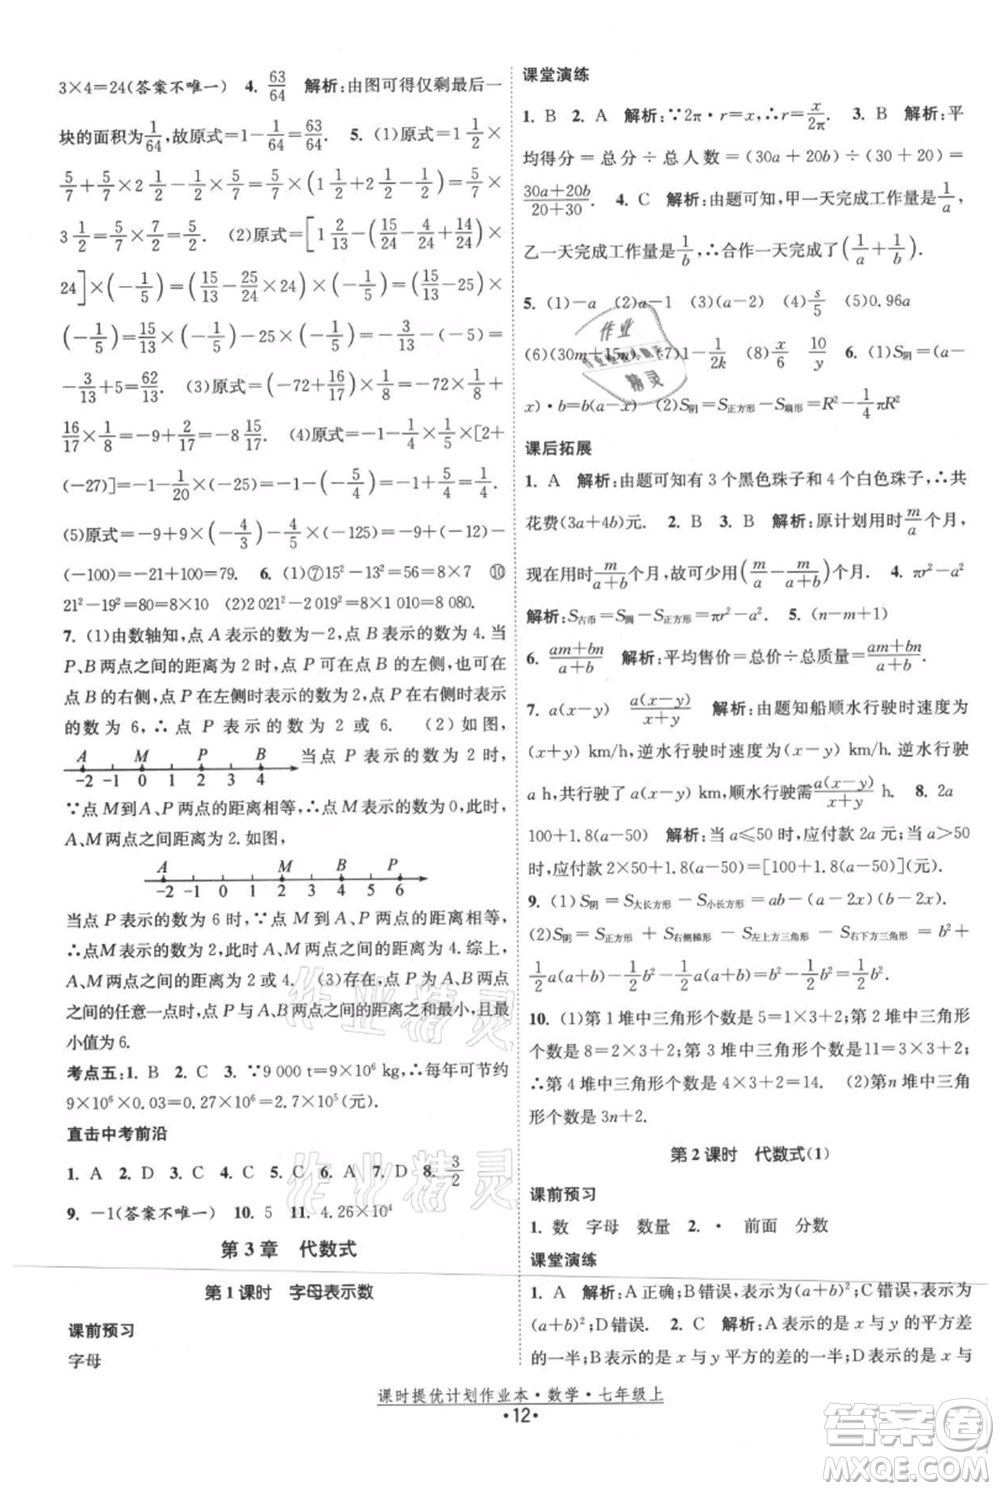 3×4=24(答案不唯一)　4. 63/64　解析:由图可得仅剩最后一
块的面积为1/64,故原式=1-1/64=63/64.　5. (1)原式=1 1/2×
5/7+5/7×2 1/2-5/7×1/2=5/7×(1 1/2+2 1/2-1/2)=5/7×
3 1/2=5/7×7/2=5/2.　(2)原式=[1 2/13-(3/24+4/24+14/24-
24]×(-1/5)=(15/13-25/24×24)×(-1/5)=(15/13-25)×
(-1/5)=15/13×(-1/5)-25×(-1/5)=-3/13-(-5)=
-3/13+5=62/13.　(3)原式=(-72+16/17)×1/8=-72×1/8+
16/17×1/8=-9+2/17=-8 15/17.　(4)原式=-1-1/4×1/5×[2+
(-27)]=-1-1/20×(-25)=-1+5/4=1/4.
(5)原式=-9+9×(-4/3)-4/5×(-125)=-9+(-12)-
(-100)=-21+100=79.　6. (1)⑦15²-13²=56=8×7　⑩
21²-19²=80=8×10　(2)2 021²-2 019²=8×1 010=8 080.
7. (1)由数轴知,点 A 表示的数为-2,点 B 表示的数为 4. 当
P、B 两点之间的距离为 2 时,点 P 可能在点 B 的左侧,也可能在
点 B 的右侧,点 P 在左侧时表示的数为 2,点 P 在右侧时表示
的数为 6,∴点 P 表示的数为 2 或 6.　(2)如图,
A　M　P　B
-2 -1 0 1 2 3 4
当点 P 表示的数为 2 时,
∵点 M 到 A、P 两点的距离相等,∴点 M 表示的数为 0,∴
A、M 两点之间距离为 2. 如图,
A　M　B　P
-2 -1 0 1 2 3 4 5 6
当点 P 表示的数为 6 时,∵点 M 到 A、P 两点的距离相等,∴
点 M 表示的数为 2,∴A、M 两点之间的距离为 4. 综上,
A、M 两点之间的距离为 2 或 4.　(3)存在,点 P 在 A、B 两点之
间的任意一点时,点 P 与 A、B 两点之间的距离之和最小,且最
小值为 6.
考点五:1. B　2. C　3. ∵9 000 t=9×10⁶ kg,∴每年可节约
9×10⁶×0.03=0.27×10⁶=2.7×10⁵(元).
直击中考前沿
1. A　2. D　3. C　4. C　5. D　6. D　7. D　8. 3/2
9. -1(答案不唯一)　10. 5　11. 4.26×10⁴
第 3 章　代数式
第 1 课时　字母表示数
课前预习
字母
课堂演练
1. B　2. A　解析:∵2π·r=x,∴r=x/2π.　3. B　解析:平
均得分=总分÷总人数=(30a+20b)÷(20+30)=
(30a+20b)/(20+30).　4. C　解析:由题可知,甲一天完成工作量是1/a,
乙一天完成工作量是1/b,∴合作一天完成了(1/a+1/b).
5. (1)-a　(2)2a-1　(3)(a-2)　(4)s/5　(5)0.96a
(6)(30m+15n)　(7)-1/2k　(8)x/6　10/y
x)·b=b(a-x)　(2)S阴=S正方形-S扇形=R²-1/4πR²
课后拓展
1. A　解析:由题可知有 3 个黑色珠子和 4 个白色珠子,∴共
花费(3a+4b)元.　2. B　3. B　解析:原计划用时m/a个月,
现在用时m/(a+b)个月,故可提前(m/a-m/(a+b))个月.　4. πr²-a²
解析:S古币=S圆-S正方形=πr²-a².　5. (n-m+1)
6. (am+bn)/(a+b)　解析:平均售价=总价÷总质量=(am+bn)/(a+b).
7. a(x-y)　a(x-y)/(x+y)　解析:由题知船顺水行驶时速度为
(x+y) km/h,逆水行驶时速度为(x-y) km/h,∵逆水行驶
a h,共行驶了a(x-y) km,∴顺水行驶需a(x-y)/(x+y) h.　8. 2a
100+1.8(a-50)　解析:当 a≤50 时,应付款 2a 元;当 a>50
时,应付款 2×50+1.8(a-50)=[100+1.8(a-50)](元)
9. (1)S阴=S大长方形-S小长方形=ab-(a-2)(b-2)
(2)S阴=S正方形+S右侧梯形-S左上方三角形-S右下方三角形=a²+
1/2a(a+b)-1/2a²-1/2a(a+b)-1/2b²=1/2a²-1/2b²
10. (1)第 1 堆中三角形个数是 5=1×3+2;第 2 堆中三角形
个数是 8=2×3+2;第 3 堆中三角形个数是 11=3×3+2;…
∴第 4 堆中三角形个数是 4×3+2=14.　(2)第 n 堆中三角
形个数是 3n+2.
第 2 课时　代数式(1)
课前预习
1. 数　字母　数量　2. ·　前面　分数
课堂演练
1. A　解析:A 正确;B 错误,表示为(a+b)²;C 错误,表示为
(a+b)²;D 错误.　2. C　解析:A 表示的是 x 与 y 平方差的
的一半;B 表示的是 x 与 y 平方的差;D 表示的是 x 的一半与
课时提优计划作业本·数学·七年级上
·12·
作业精灵
作业精灵
作业精灵
答案圈
MXQE.COM